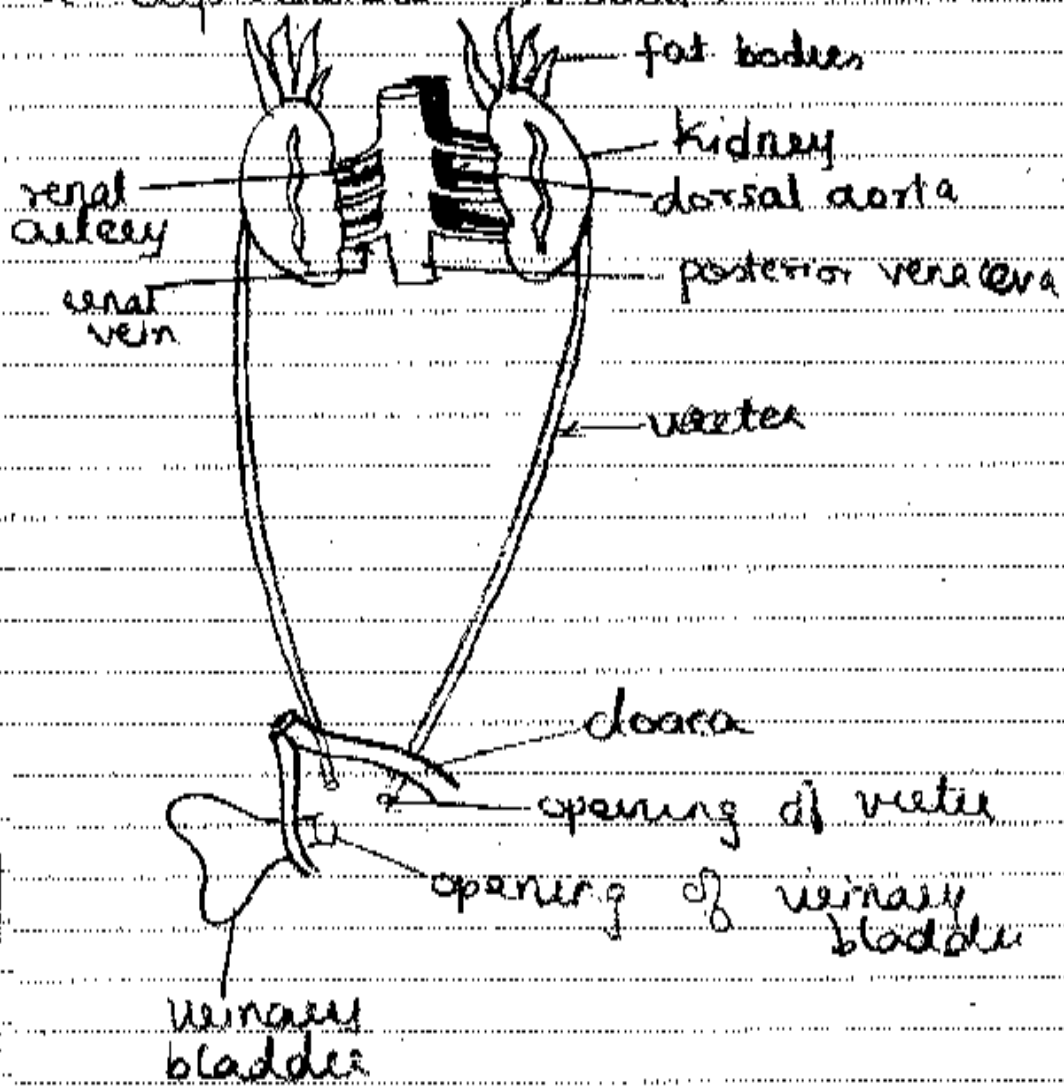 fat bodies
kidney
renal
artery
dorsal aorta
posterior vena cava
renal
vein
ureter
cloaca
opening of ureter
opening of urinary
bladder
urinary
bladder